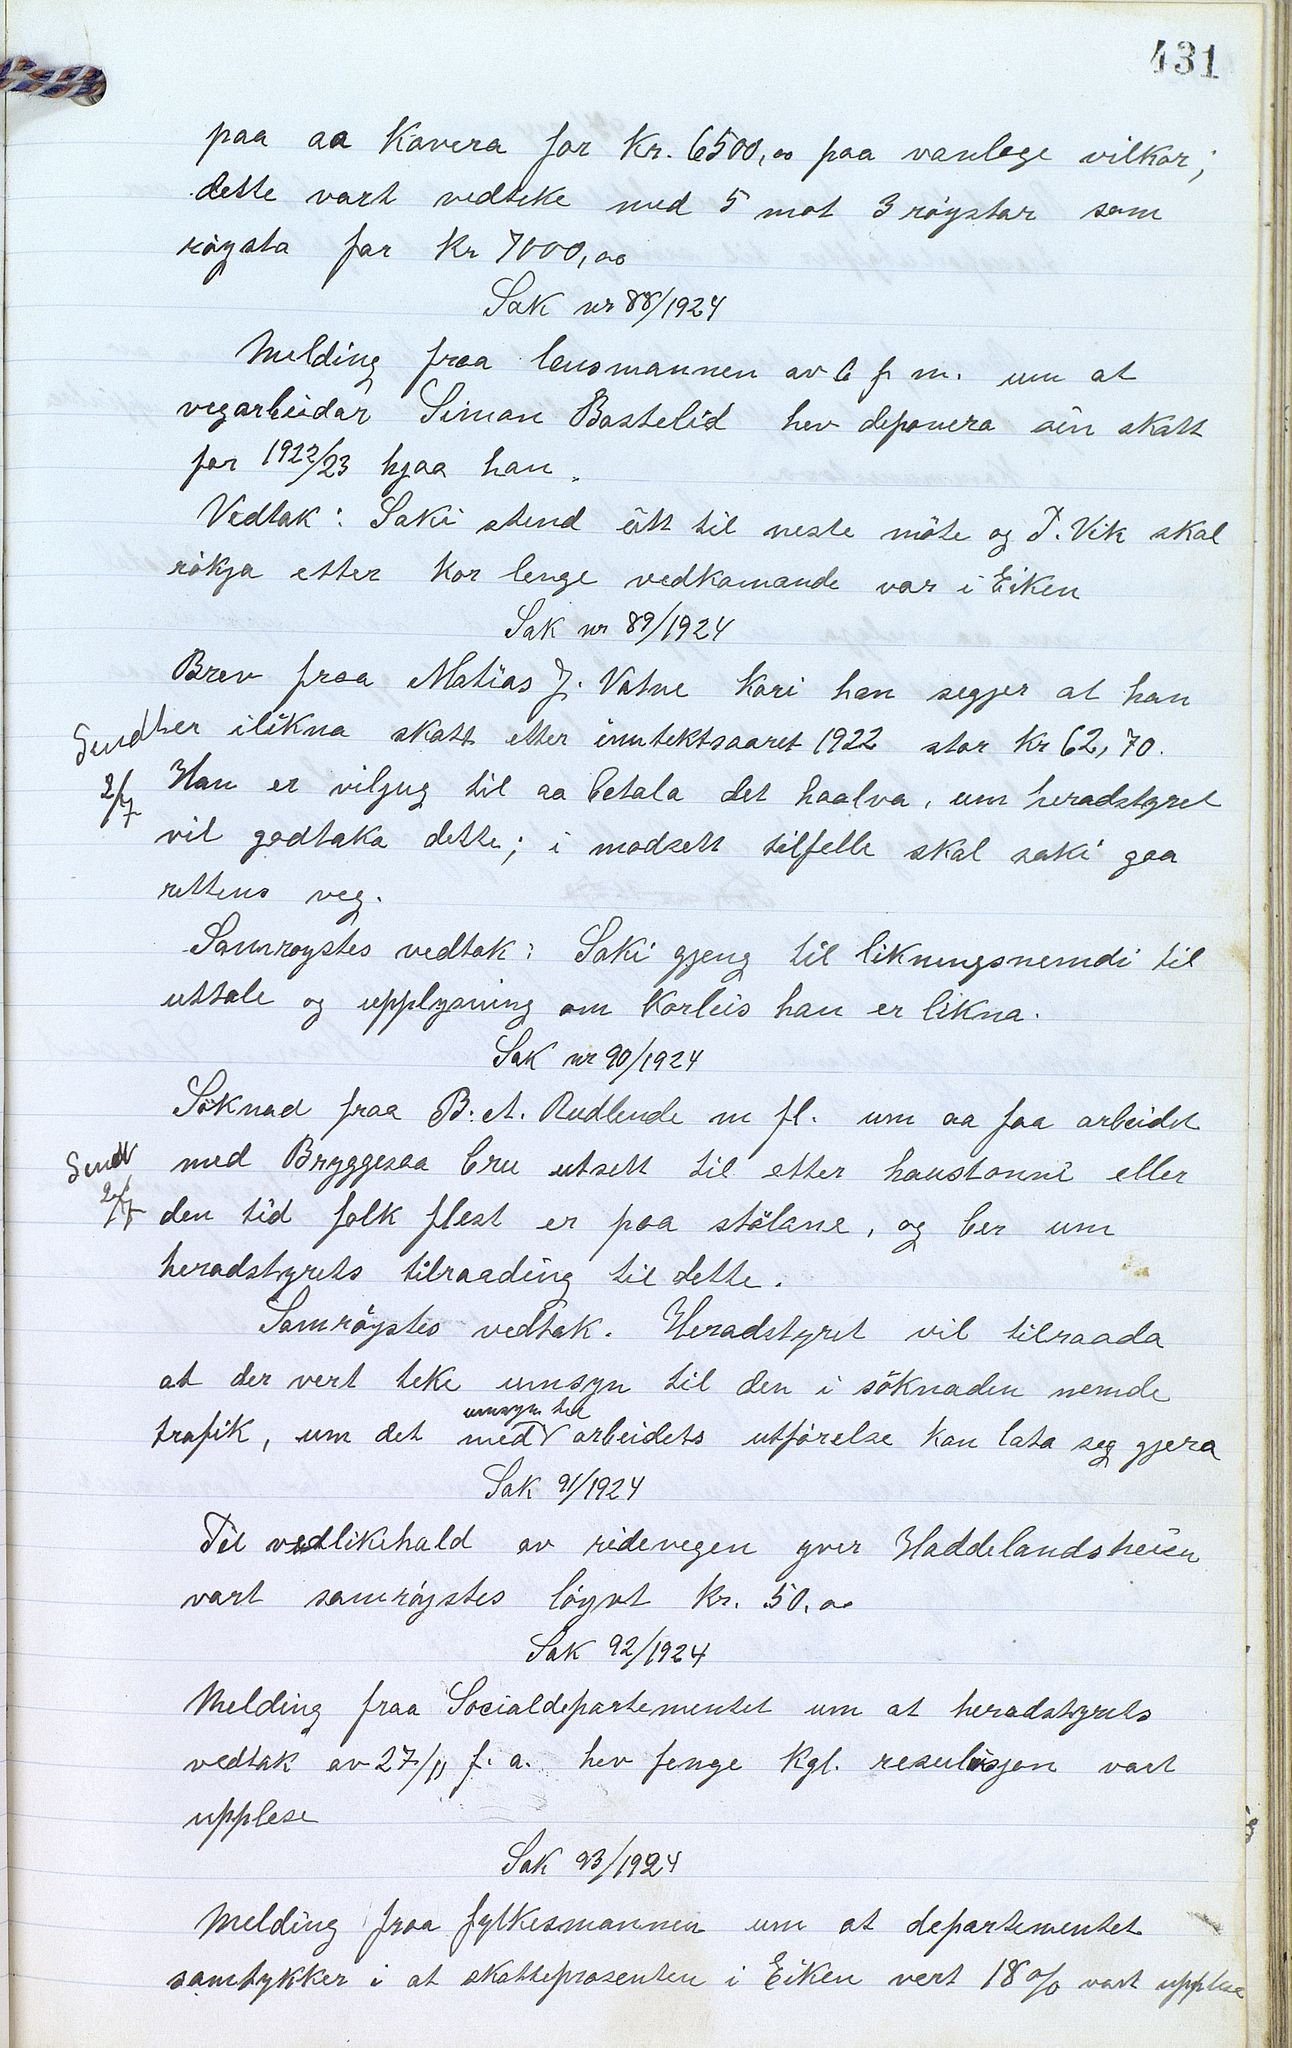 431
paa aa kavera for kr. 6500,oo paa vanlege vilkor;
dette vart vedteke med 5 mot 3 röystar som
röysta for kr 7000,oo
Sak nr 88/1924
Melding fraa lensmannen av 6 f m. um at
vegarbeidar Simon Bastelid hev deponera sin skatt
for 1922/23 hjaa han.
Vedtak: Saki stend ütt til neste möte og T. Vik skal
rökja etter kor lenge vedkomande var i Eiken
Sak nr 89/1924
Brev fraa Matias J. Vatne kori han segjer at han
Sendt er ilikna skatt etter inntektsaaret 1922 stor kr 62,70.
2/7 Han er viljug til aa betala det haalva, um heradstyret
vil godtaka dette; i modsett tilfelle skal saki gaa
rettens veg.
Samroystes vedtak: Saki gjeng til likningsnemdi til
uttale og upplysning om korleis han er likna.
Sak nr 90/1924
Söknad fraa B. A. Rudlende m fl. um aa faa arbeidet
Sendt med Bryggesaa bru utsett til etter haustonni eller
2/7 den tid folk flest er paa stölane, og ber um
heradstyrets tilraading til dette.
Samröystes vedtak. Heradstyret vil tilraada
at der vert teke umsyn til den i söknaden nemde
umsyn til
trafik, um det med arbeidets utförelse kan lata seg gjera
Sak 91/1924
Til vedlikehald av ridevegen yver Haddelandsheien
vart samröystes löyvt kr. 50,oo
Sak 92/1924
Melding fraa Socialdepartementet um at heradstyrets
vedtak av 27/11 f. a. hev fenge kgl. resulusjon vart
upplese
Sak 93/1924
Melding fraa fylkesmannen um at departementet
samtykker i at skatteprosenten i Eiken vert 18 o/o vart upplese